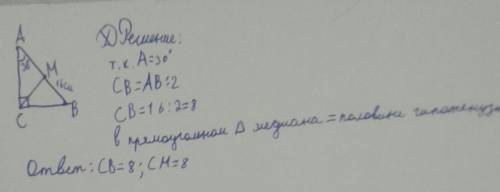 A
30°
M
16см
C
B
Решение:
т.к. A=30°
CB=AB:2
CB=16:2=8
в прямоугольном Δ медиана = половине гипотенузы
Ответ: CB=8; CM=8